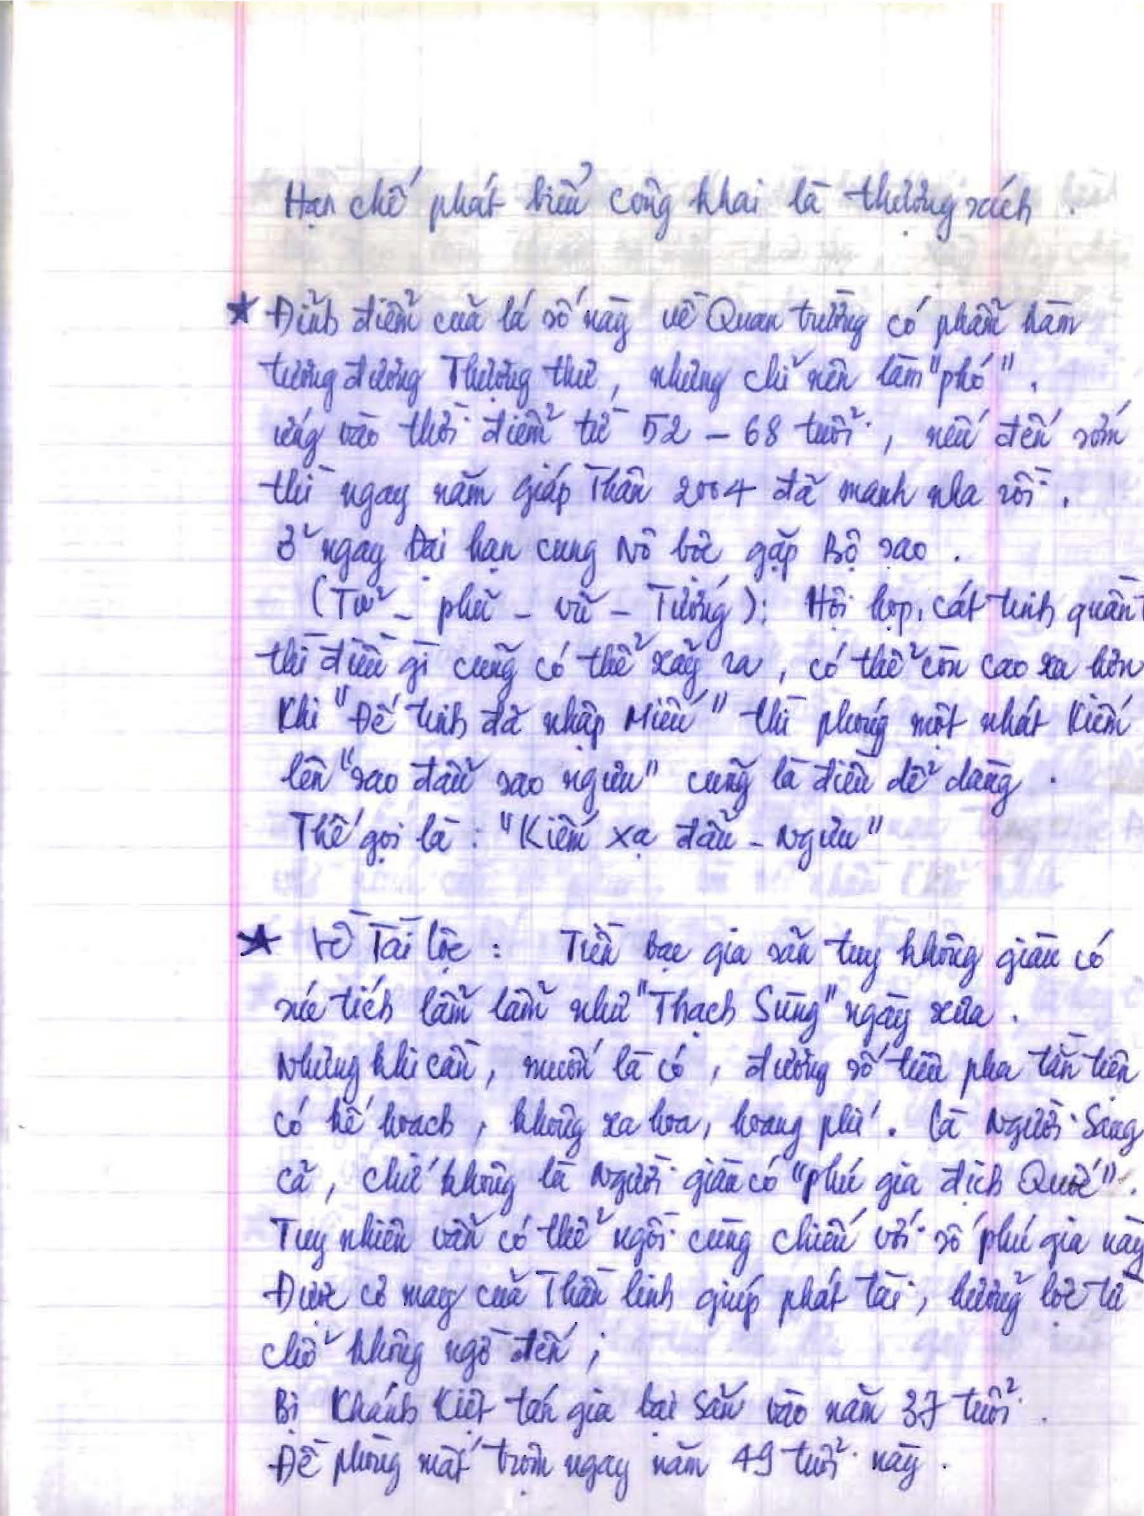 Hạn chế phát biểu công khai là thượng sách.
★ Đỉnh điểm của lá số này về Quan trường có phẩm hàm
tương đương Thượng thư, nhưng chỉ nên làm "phó".
ứng vào thời điểm từ 52 - 68 tuổi, nếu đến sớm
thì ngay năm giáp Thân 2004 đã manh nha rồi.
Ở ngay Đại hạn cung Nô bộc gặp Bộ sao.
(Tử - phủ - vũ - Tướng): Hội họp, cát tinh quần
thì điều gì cũng có thể xảy ra, có thể còn cao xa hơn
Khi "Đế tinh đã nhập Miếu" thì phóng một nhát Kiếm
lên "sao đẩu sao ngưu" cũng là điều dễ dàng.
Thế gọi là: "Kiếm xạ đẩu - Ngưu"
★ Về Tài lộc: Tiền bạc gia sản tuy không giàu có
súc tích lẫm lẫm như "Thạch Sùng" ngày xưa.
Nhưng khi cần, muốn là có, đương số tiêu pha tằn tiện
có kế hoạch, không xa hoa, hoang phí. Là Người Sang
cả, chứ không là Người giàu có "phú gia địch Quốc".
Tuy nhiên vẫn có thể ngồi cùng chiếu với số phú gia này
Được cơ may của Thần linh giúp phát tài, hưởng lộc từ
chỗ không ngờ đến;
Bị Khánh Kiệt tán gia bại Sản vào năm 37 tuổi.
Đề phòng mất trộm ngay năm 49 tuổi này.